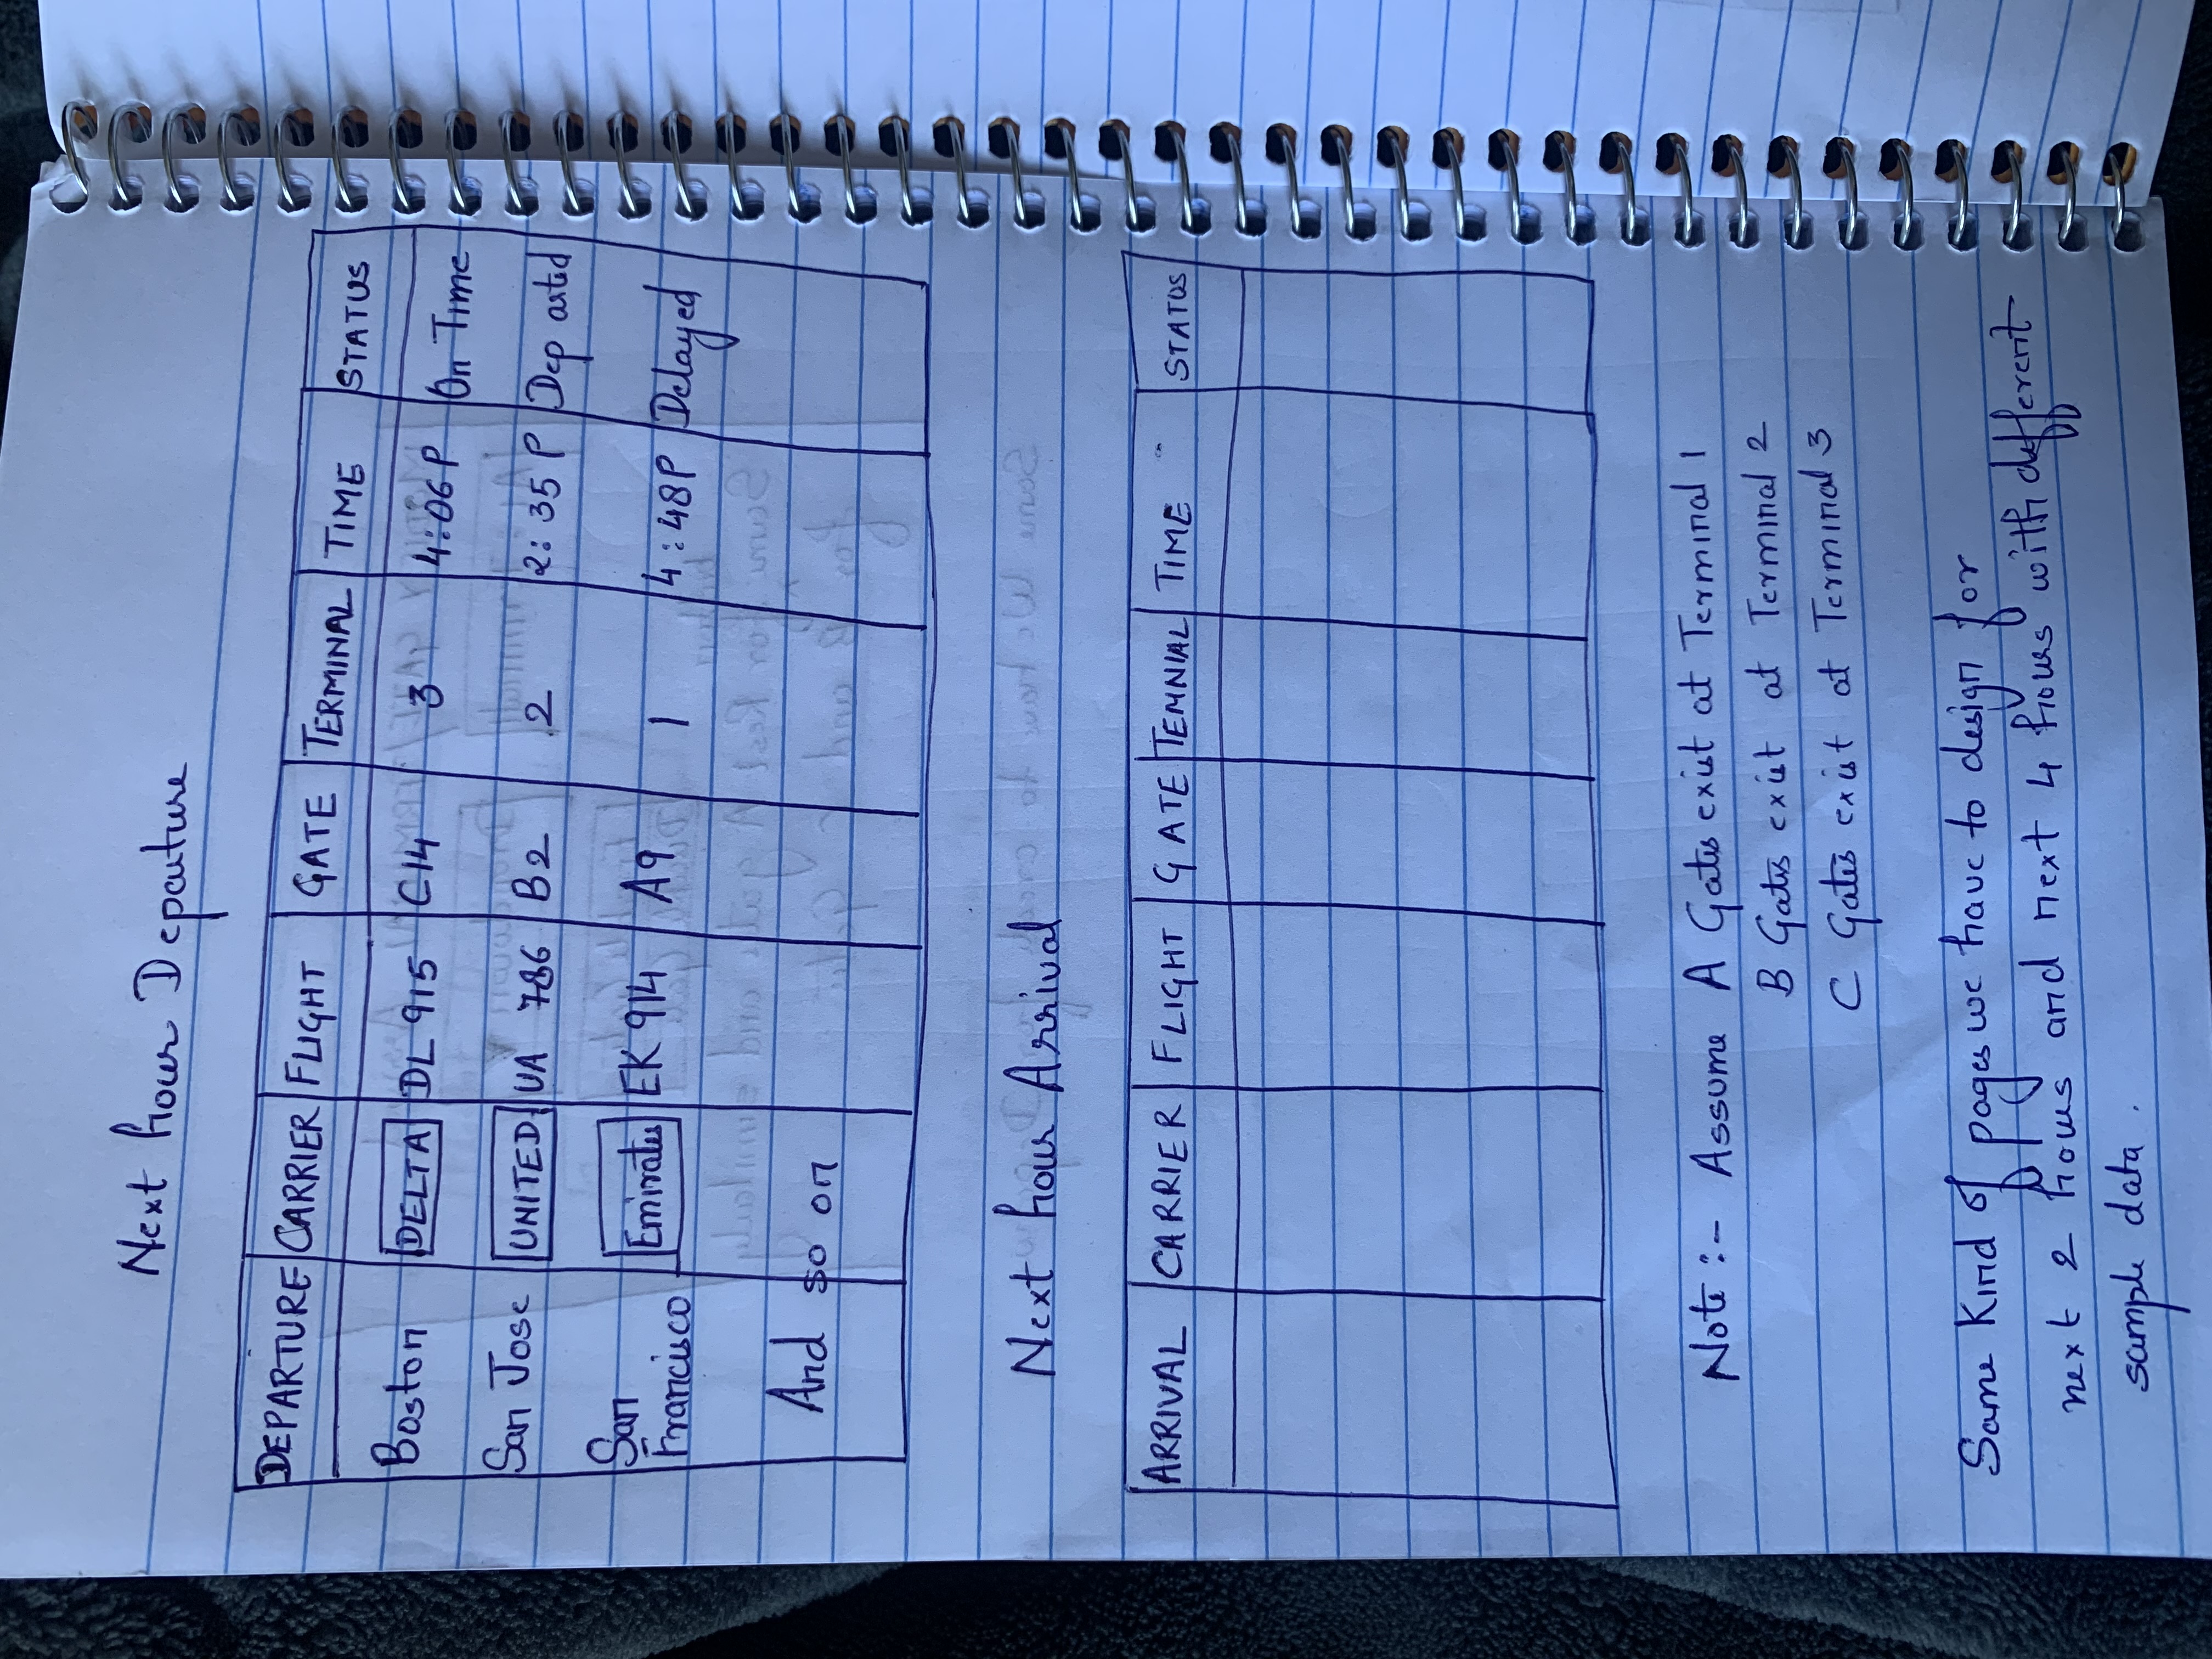 Next hour Departure
DEPARTURE CARRIER FLIGHT GATE TERMINAL TIME STATUS
Boston DELTA DL 915 C14 3 4:06 P On Time
San Jose UNITED UA 786 B2 2 2:35 P Departed
San Francisco Emirates EK 914 A9 1 4:48P Delayed
And so on
Next hour Arrival
ARRIVAL CARRIER FLIGHT GATE TEMNIAL TIME STATUS
Note :- Assume A Gates exist at Terminal 1
B Gates exist at Terminal 2
C Gates exist at Terminal 3
Same kind of pages we have to design for
next 2 hours and next 4 hours with different
sample data.